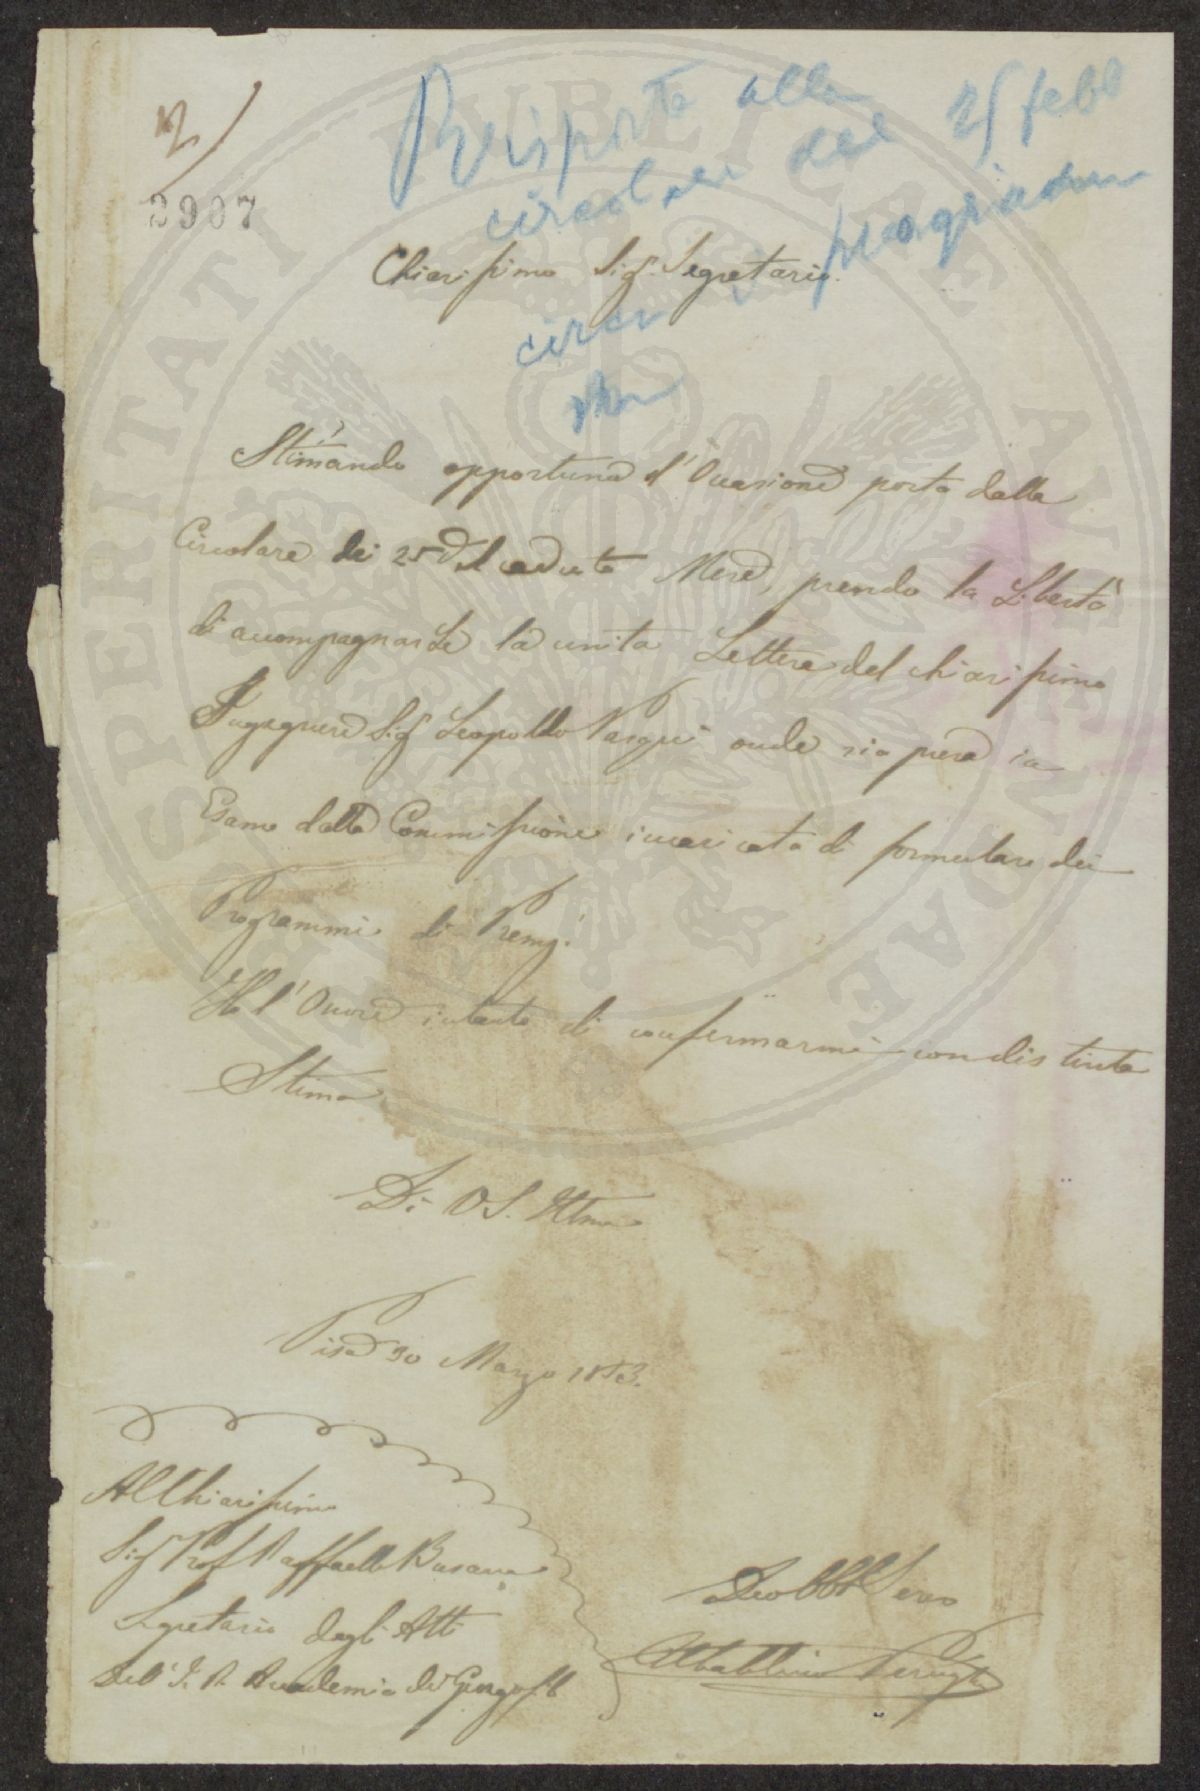 2907
Risposta alla
circolare del 25 febb
circa
Chiarissimo Sig. Segretario.
Stimando opportuna l'Occasione porta dalla
Circolare dei 25 del caduto Mese, prendo la Libertà
di accompagnarLe la unita Lettera del chiarissimo
Ingegnere Sig. Leopoldo Pasqui onde sia presa in
Esame dalla Commissione incaricata di formulare dei
Programmi di Premj.
Ho l'Onore intanto di confermarmi con distinta
Stima
Di V S. Illma
Pisa 30 Marzo 1853.
Al Chiarissimo
Sig Prof Raffaello Busacca
Segretario degli Atti
Dell' I. R. Accademia dei Georgofili
Devo Obbl Servo
PROSPERITATI PUBLICAE AUGENDAE